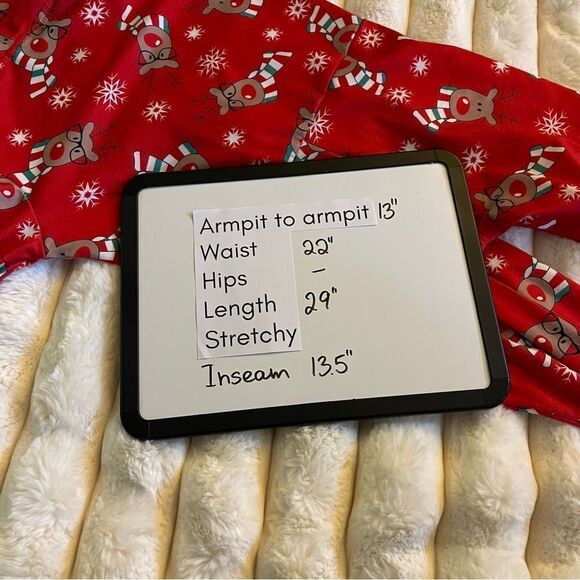 Armpit to armpit 13"
Waist 22"
Hips –
Length 29"
Stretchy
Inseam 13.5"